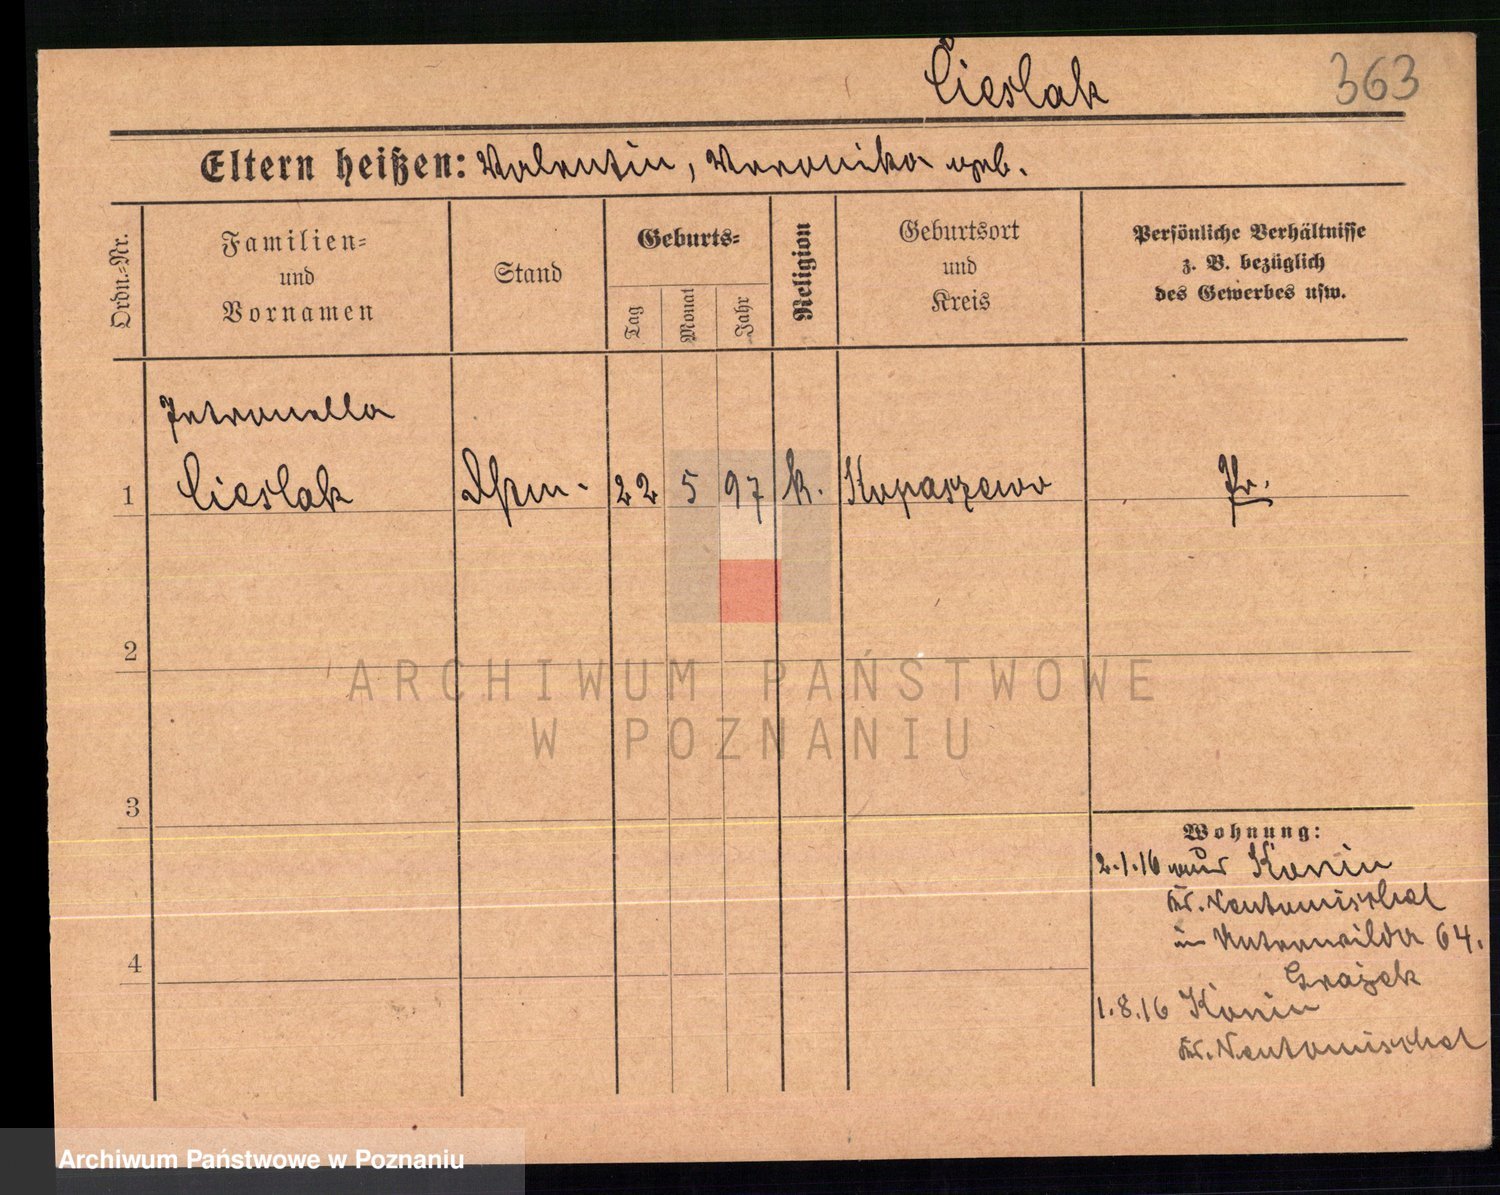 Cieslak 363
Eltern heißen: Valentin, Veronika geb.
Ordn.-Nr.
Familien-
und
Vornamen
Stand
Geburts-
Tag
Monat
Jahr
Religion
Geburtsort
und
Kreis
Persönliche Verhältnisse
z. B. bezüglich
des Gewerbes usw.
Petronella
1 Cieslak 22 5 97 k. Kopaszewo Pr.
2
3
4
Wohnung:
2.1.16 aus Konin
Kr. Neutomischel
in Unterwilda 64.
Grajek
1.8.16 Konin
Kr. Neutomischel
ARCHIWUM PAŃSTWOWE
W POZNANIU
Archiwum Państwowe w Poznaniu